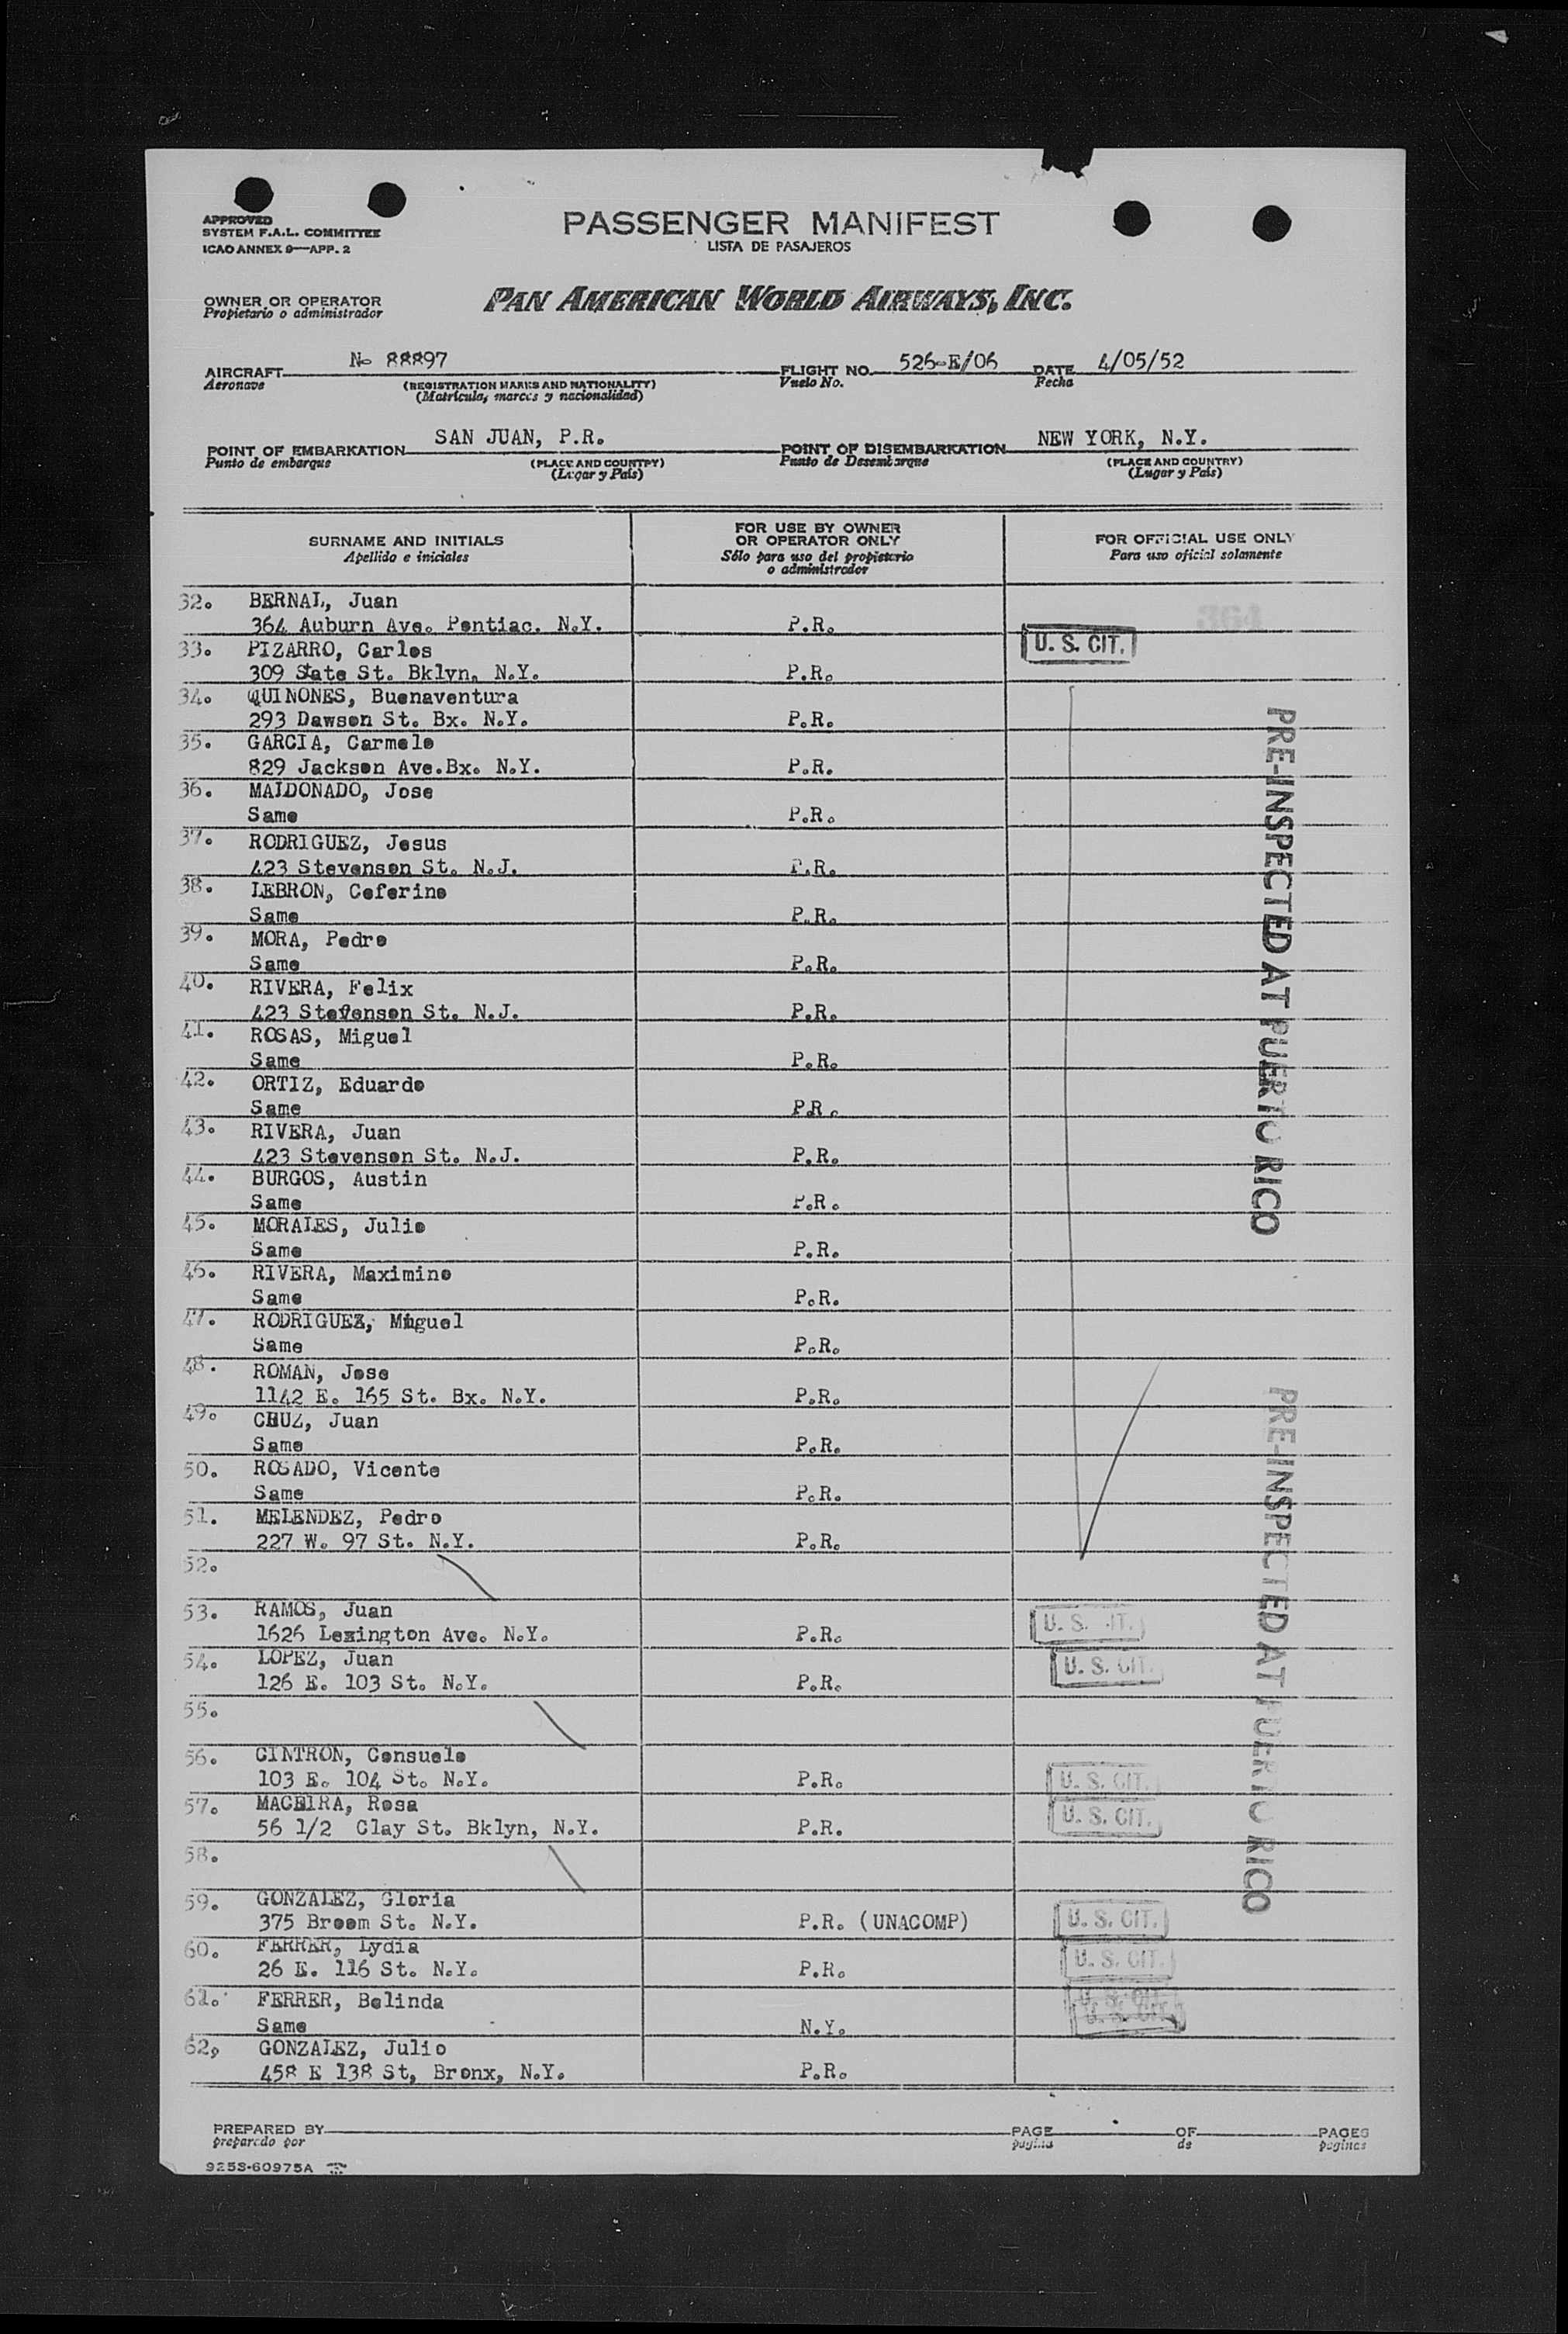 APPROVED
SYSTEM F.A.L. COMMITTEE
ICAO ANNEX 9—APP. 2
PASSENGER MANIFEST
LISTA DE PASAJEROS
OWNER OR OPERATOR
Propietario o administrador
PAN AMERICAN WORLD AIRWAYS, INC.
AIRCRAFT No 88897
Aeronave
(REGISTRATION MARKS AND NATIONALITY)
(Matrícula, marcas y nacionalidad)
FLIGHT NO. 526-E/06
Vuelo No.
DATE 4/05/52
Fecha
POINT OF EMBARKATION SAN JUAN, P.R.
Punto de embarque
(PLACE AND COUNTRY)
(Lugar y País)
POINT OF DISEMBARKATION NEW YORK, N.Y.
Punto de Desembarque
(PLACE AND COUNTRY)
(Lugar y País)
SURNAME AND INITIALS
Apellido e iniciales
FOR USE BY OWNER
OR OPERATOR ONLY
Sólo para uso del propietario
o administrador
FOR OFFICIAL USE ONLY
Para uso oficial solamente
32. BERNAL, Juan
364 Auburn Ave. Pontiac. N.Y. P.R.
33. PIZARRO, Carlos U. S. CIT.
309 State St. Bklyn. N.Y. P.R.
34. QUINONES, Buenaventura
293 Dawson St. Bx. N.Y. P.R.
35. GARCIA, Carmelo
829 Jackson Ave.Bx. N.Y. P.R.
36. MALDONADO, Jose
Same P.R.
37. RODRIGUEZ, Jesus
423 Stevenson St. N.J. P.R.
38. LEBRON, Ceferino
Same P.R.
39. MORA, Pedro
Same P.R.
40. RIVERA, Felix
423 Stevenson St. N.J. P.R.
41. ROSAS, Miguel
Same P.R.
42. ORTIZ, Eduardo
Same P.R.
43. RIVERA, Juan
423 Stevenson St. N.J. P.R.
44. BURGOS, Austin
Same P.R.
45. MORALES, Julio
Same P.R.
46. RIVERA, Maximino
Same P.R.
47. RODRIGUEZ, Miguel
Same P.R.
48. ROMAN, Jose
1142 E. 165 St. Bx. N.Y. P.R.
49. CRUZ, Juan
Same P.R.
50. ROSADO, Vicente
Same P.R.
51. MELENDEZ, Pedro
227 W. 97 St. N.Y. P.R.
52.
53. RAMOS, Juan
1626 Lexington Ave. N.Y. P.R. U. S. CIT.
54. LOPEZ, Juan
126 E. 103 St. N.Y. P.R. U. S. CIT.
55.
56. CINTRON, Consuelo
103 E. 104 St. N.Y. P.R. U. S. CIT.
57. MACEIRA, Rosa
56 1/2 Clay St. Bklyn, N.Y. P.R. U. S. CIT.
58.
59. GONZALEZ, Gloria
375 Broom St. N.Y. P.R. (UNACOMP) U. S. CIT.
60. FERRER, Lydia
26 E. 116 St. N.Y. P.R. U. S. CIT.
61. FERRER, Belinda U. S. CIT.
Same N.Y. U. S. CIT.
62, GONZALEZ, Julio
458 E 138 St, Bronx, N.Y. P.R.
PRE-INSPECTED AT PUERTO RICO
PRE-INSPECTED AT PUERTO RICO
PREPARED BY
preparado por
PAGE OF PAGES
pagina de paginas
9253-60975A